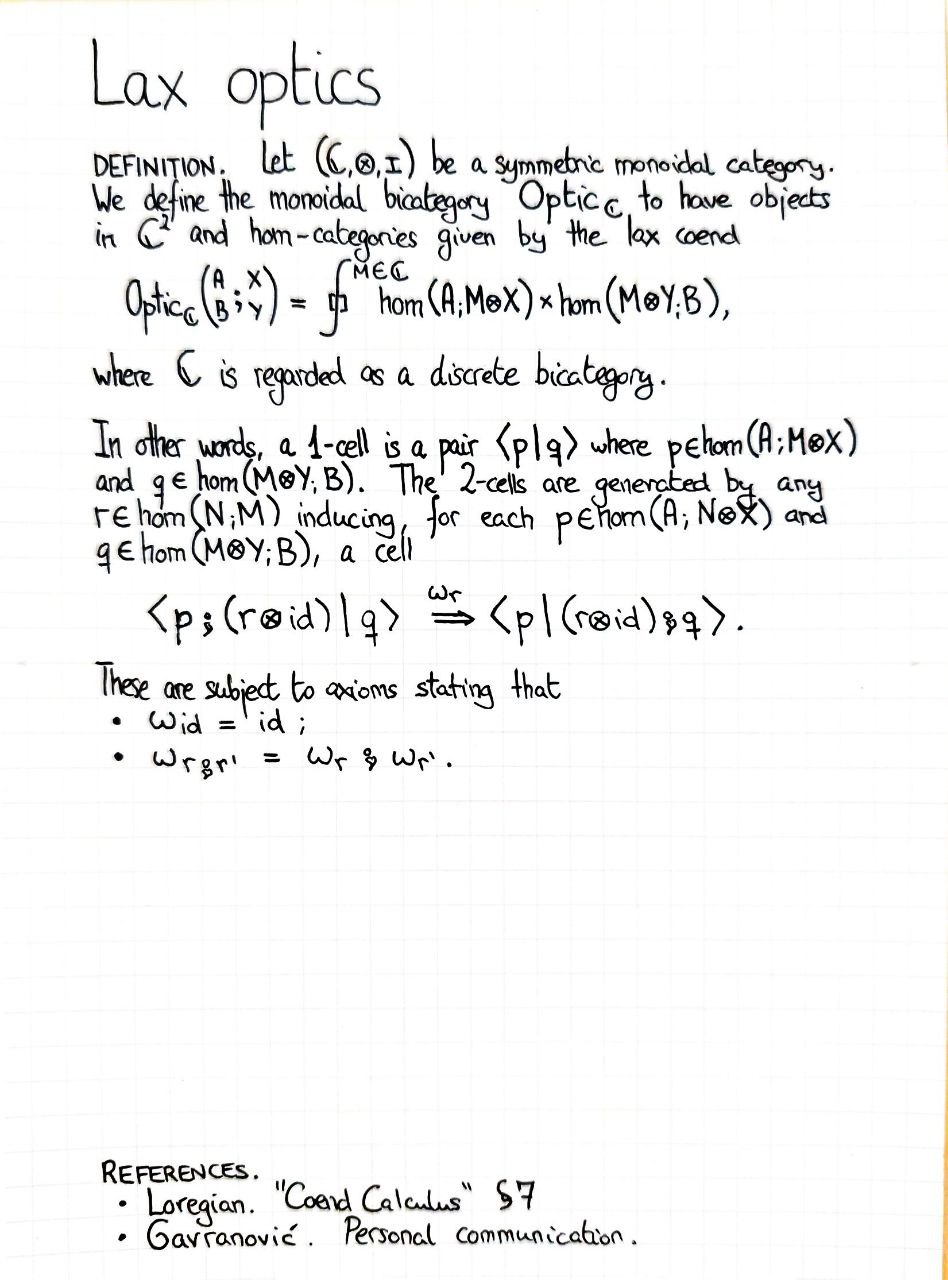 Lax optics
DEFINITION. Let (ℂ,⊗,I) be a symmetric monoidal category.
We define the monoidal bicategory Optic_ℂ to have objects
in ℂ² and hom-categories given by the lax coend
Optic_ℂ(A B ; X Y) = ∮^{M∈ℂ} hom(A;M⊗X) × hom(M⊗Y;B),
where ℂ is regarded as a discrete bicategory.
In other words, a 1-cell is a pair ⟨p|q⟩ where p∈hom(A;M⊗X)
and q∈hom(M⊗Y;B). The 2-cells are generated by any
r∈hom(N;M) inducing, for each p∈hom(A;N⊗X) and
q∈hom(M⊗Y;B), a cell
⟨p⨟(r⊗id)|q⟩ ⇒^{ω_r} ⟨p|(r⊗id)⨟q⟩.
These are subject to axioms stating that
• ω_{id} = id ;
• ω_{r⨟r'} = ω_r ⨟ ω_{r'}.
REFERENCES.
• Loregian. "Coend Calculus" §7
• Gavranović. Personal communication.